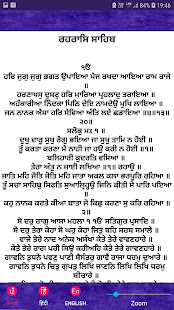 54% 19:46
ਰਹਰਾਸਿ ਸਾਹਿਬ
ੴ
ਹਰਿ ਜੁਗੁ ਜੁਗੁ ਭਗਤ ਉਪਾਇਆ ਪੈਜ ਰਖਦਾ ਆਇਆ ਰਾਮ ਰਾਜੇ
॥
ਹਰਣਾਖਸੁ ਦੁਸਟੁ ਹਰਿ ਮਾਰਿਆ ਪ੍ਰਹਲਾਦੁ ਤਰਾਇਆ ॥
ਅਹੰਕਾਰੀਆ ਨਿੰਦਕਾ ਪਿਠਿ ਦੇਇ ਨਾਮਦੇਉ ਮੁਖਿ ਲਾਇਆ ॥
ਜਨ ਨਾਨਕ ਐਸਾ ਹਰਿ ਸੇਵਿਆ ਅੰਤਿ ਲਏ ਛਡਾਇਆ ॥੪॥੧੩॥
੨੦॥
ਸਲੋਕੁ ਮਃ ੧ ॥
ਦੁਖੁ ਦਾਰੂ ਸੁਖੁ ਰੋਗੁ ਭਇਆ ਜਾ ਸੁਖੁ ਤਾਮਿ ਨ ਹੋਈ ॥
ਤੂੰ ਕਰਤਾ ਕਰਣਾ ਮੈ ਨਾਹੀ ਜਾ ਹਉ ਕਰੀ ਨ ਹੋਈ ॥੧॥
ਬਲਿਹਾਰੀ ਕੁਦਰਤਿ ਵਸਿਆ ॥
ਤੇਰਾ ਅੰਤੁ ਨ ਜਾਈ ਲਖਿਆ ॥੧॥ ਰਹਾਉ ॥
ਜਾਤਿ ਮਹਿ ਜੋਤਿ ਜੋਤਿ ਮਹਿ ਜਾਤਾ ਅਕਲ ਕਲਾ ਭਰਪੂਰਿ ਰਹਿਆ ॥
ਤੂੰ ਸਚਾ ਸਾਹਿਬੁ ਸਿਫਤਿ ਸੁਆਲ੍ਹਿਉ ਜਿਨਿ ਕੀਤੀ ਸੋ ਪਾਰਿ ਪਇਆ
॥
ਕਹੁ ਨਾਨਕ ਕਰਤੇ ਕੀਆ ਬਾਤਾ ਜੋ ਕਿਛੁ ਕਰਣਾ ਸੁ ਕਰਿ ਰਹਿਆ
॥੨॥
ਸੋ ਦਰੁ ਰਾਗੁ ਆਸਾ ਮਹਲਾ ੧ ੴ ਸਤਿਗੁਰ ਪ੍ਰਸਾਦਿ ॥
ਸੋ ਦਰੁ ਤੇਰਾ ਕੇਹਾ ਸੋ ਘਰੁ ਕੇਹਾ ਜਿਤੁ ਬਹਿ ਸਰਬ ਸਮਾਲੇ ॥
ਵਾਜੇ ਤੇਰੇ ਨਾਦ ਅਨੇਕ ਅਸੰਖਾ ਕੇਤੇ ਤੇਰੇ ਵਾਵਣਹਾਰੇ ॥
ਕੇਤੇ ਤੇਰੇ ਰਾਗ ਪਰੀ ਸਿਉ ਕਹੀਅਹਿ ਕੇਤੇ ਤੇਰੇ ਗਾਵਣਹਾਰੇ ॥
ਗਾਵਨਿ ਤੁਧਨੋ ਪਵਣੁ ਪਾਣੀ ਬੈਸੰਤਰੁ ਗਾਵੈ ਰਾਜਾ ਧਰਮੁ ਦੁਆਰੇ ॥
ਗਾਵਨਿ ਤੁਧਨੋ ਚਿਤੁ ਗੁਪਤੁ ਲਿਖਿ ਜਾਣਨਿ ਲਿਖਿ ਲਿਖਿ ਧਰਮੁ
ਬੀਚਾਰੇ ॥
ਪੰ ਹਿੰ En
ਪੰਜਾਬੀ हिंदी ENGLISH Zoom